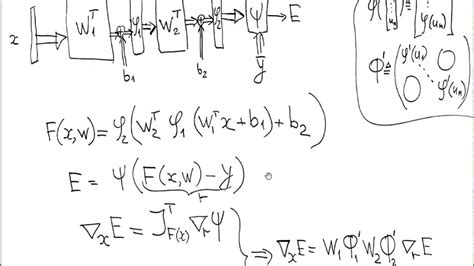 x W₁ᵀ φ₁ W₂ᵀ φ₂ ψ E
b₁ b₂ y̅
φ(uₙ)
Φ' ≜ ( φ'(u₁) φ'(uₙ) )
F(x,w) = φ₂(W₂ᵀ φ₁(W₁ᵀx+b₁)+b₂)
E = ψ(F(x,w) – y̅)
r
∇ₓE = Jᵀ_F(x) ∇ᵣψ } ⇒ ∇ₓE = W₁Φ'₁W₂Φ'₂ ∇ᵣE